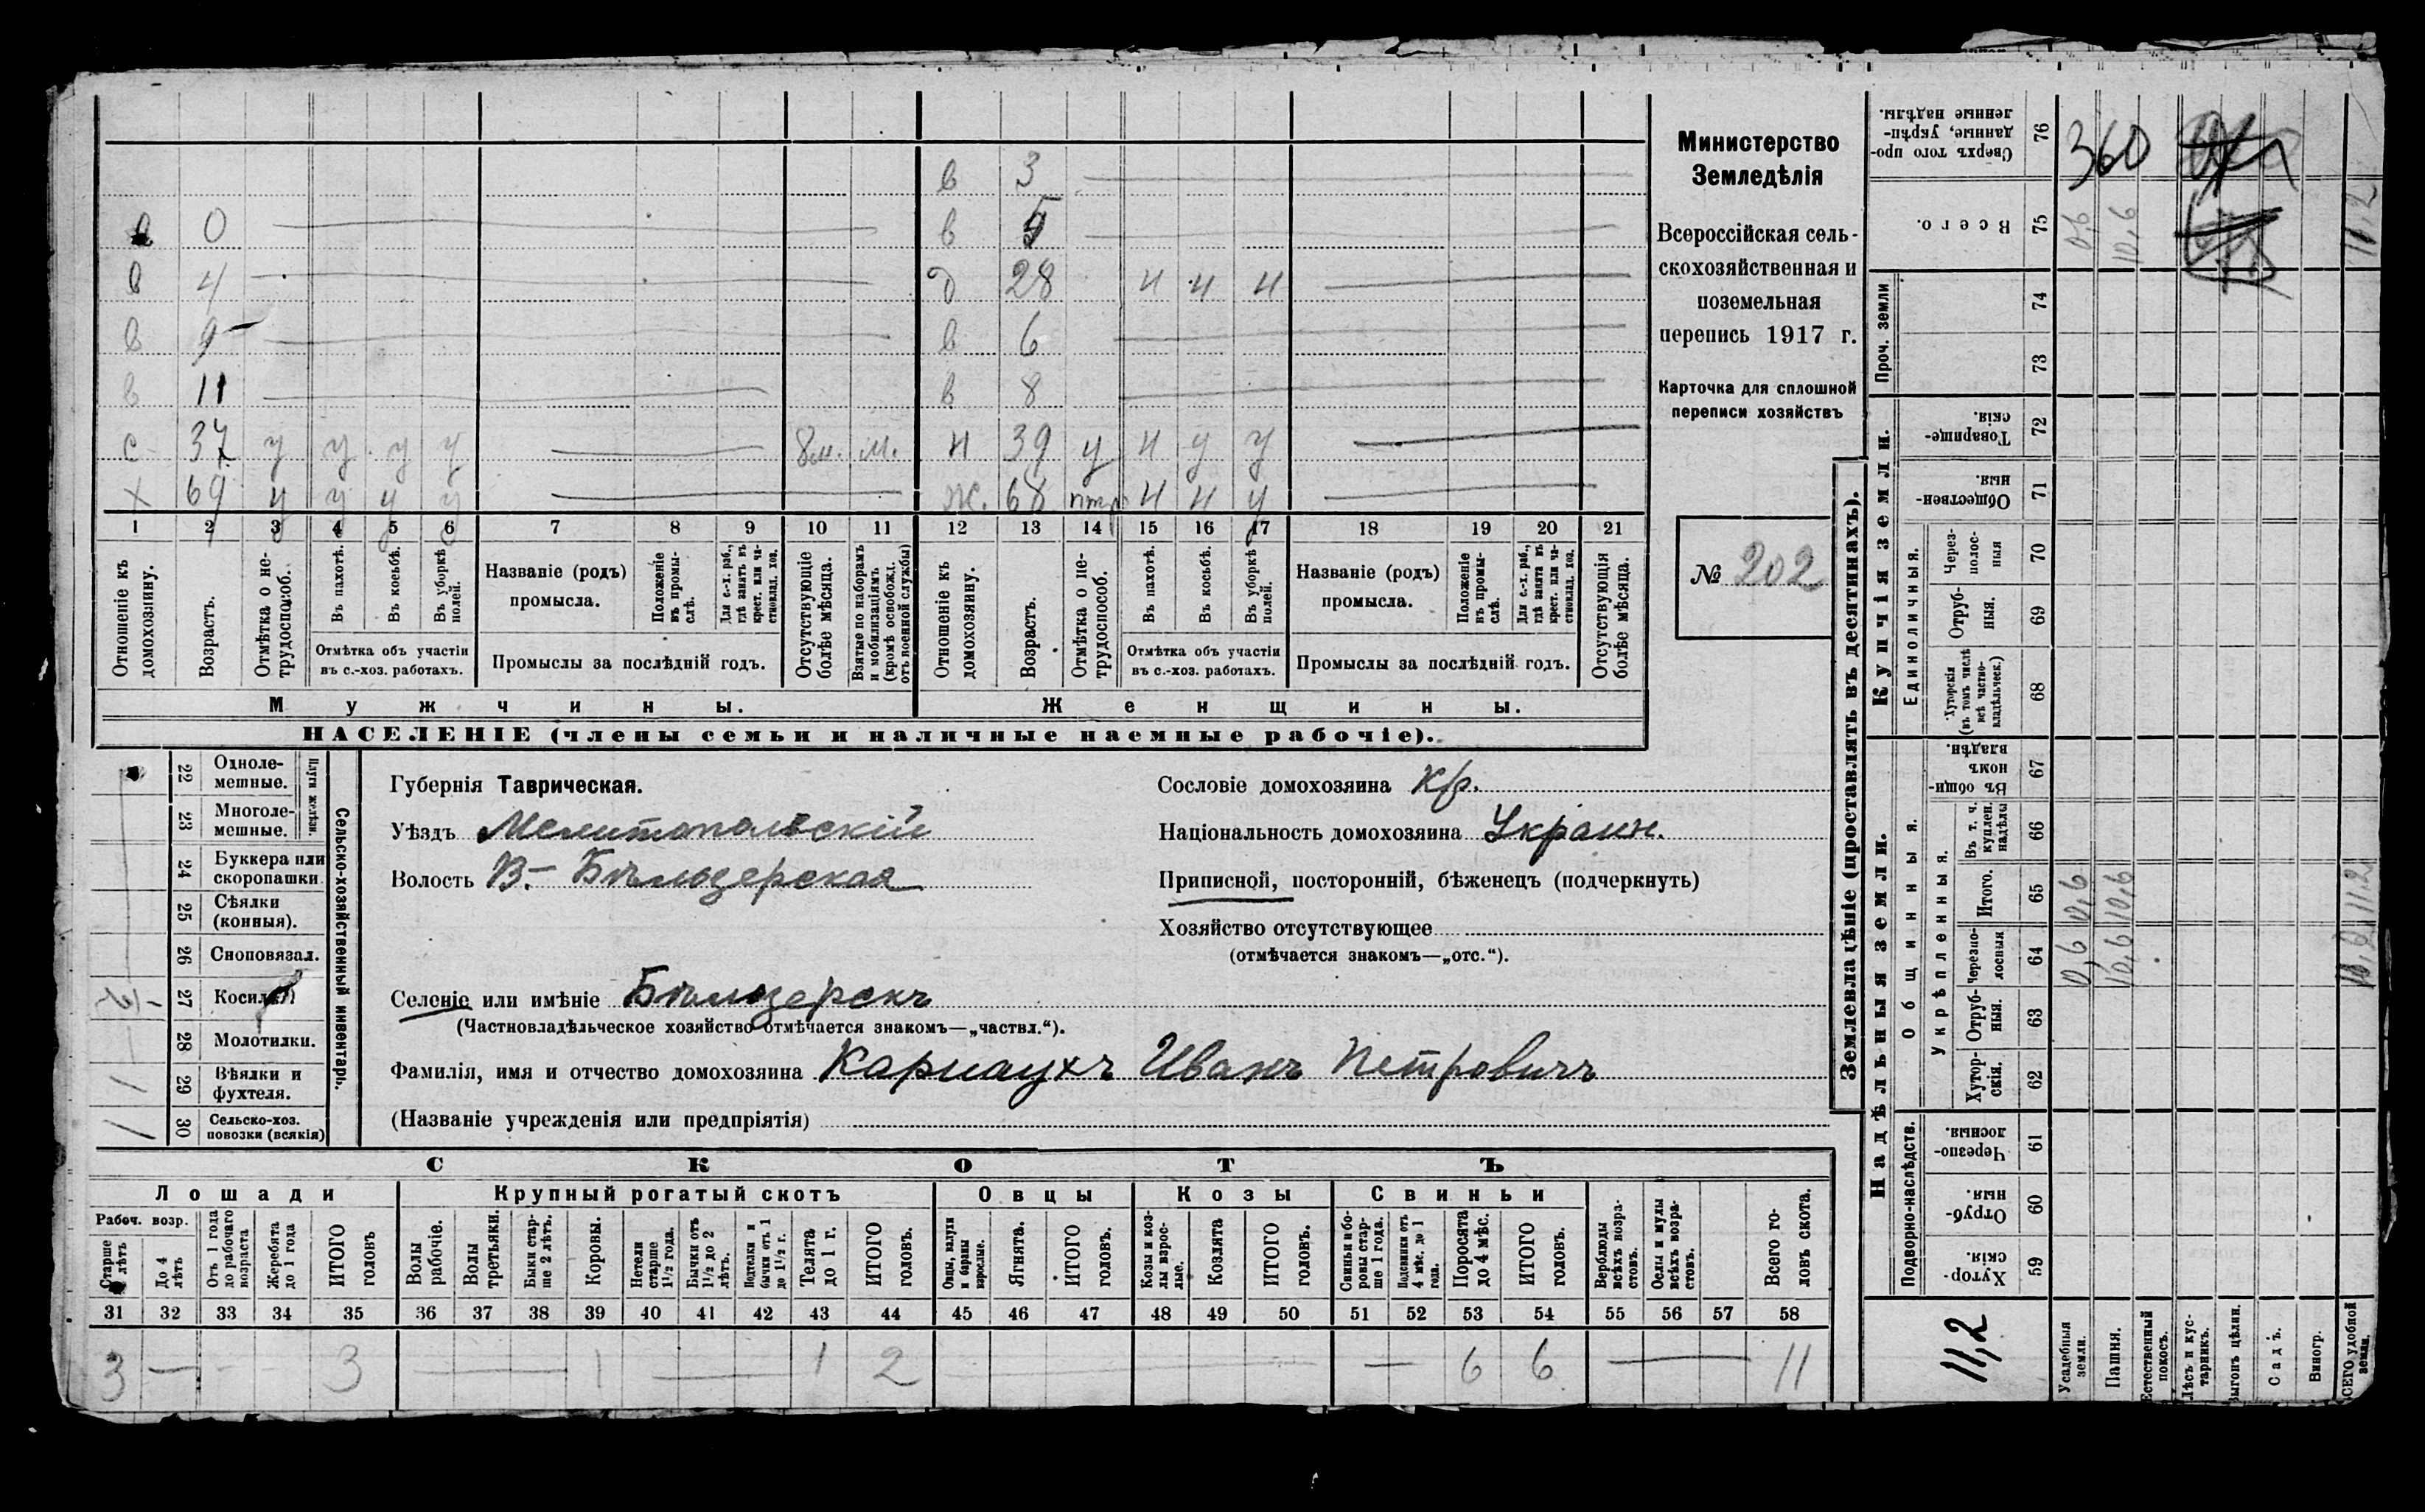 в 3
0 в 5
в 4 д 28 н н н
в 9 в 6
в 11 в 8
с 37 у у у у 8м. м. н 39 у н у у
х 69 у у у у ж. 68 н н у
1 2 3 4 5 6 7 8 9 10 11 12 13 14 15 16 17 18 19 20 21
Отношеніе къ домохозяину.
Возрастъ.
Отмѣтка о не-трудоспособ.
Въ пахотѣ.
Въ косьбѣ.
Въ уборкѣ полей.
Отмѣтка объ участіи
въ с.-хоз. работахъ.
Названіе (родъ)
промысла.
Положеніе въ промы-слѣ.
Для с.-х. раб., гдѣ занятъ въ крест. или ча-стновлад. хоз.
Промыслы за послѣдній годъ.
Отсутствующіе болѣе мѣсяца.
Взятые по наборамъ и мобилизаціямъ (кромѣ освобожд. отъ военной службы)
Отношеніе къ домохозяину.
Возрастъ.
Отмѣтка о не-трудоспособ.
Въ пахотѣ.
Въ косьбѣ.
Въ уборкѣ полей.
Отмѣтка объ участіи
въ с.-хоз. работахъ.
Названіе (родъ)
промысла.
Положеніе въ промы-слѣ.
Для с.-х. раб., гдѣ занята въ крест. или ча-стновлад. хоз.
Промыслы за послѣдній годъ.
Отсутствующія болѣе мѣсяца.
Мужчины.
Женщины.
НАСЕЛЕНІЕ (члены семьи и наличные наемные рабочіе).
Министерство
Земледѣлія
Всероссійская сель-
скохозяйственная и
поземельная
перепись 1917 г.
Карточка для сплошной
переписи хозяйствъ
№ 202
Сельско-хозяйственный инвентарь.
Плуги желѣзн.
22 Однолемешные.
23 Многолемешные.
24 Буккера или скоропашки.
25 Сѣялки (конныя).
26 Сноповязал.
27 Косилки
28 Молотилки.
29 Вѣялки и фухтеля. 1
30 Сельско-хоз. повозки (всякія) 1
Губернія Таврическая.
Уѣздъ Мелитопольскій
Волость В.- Бѣлозерская
Сословіе домохозяина Кр.
Національность домохозяина Украин.
Приписной, посторонній, бѣженецъ (подчеркнуть)
Хозяйство отсутствующее
(отмѣчается знакомъ—„отс.“).
Селеніе или имѣніе Бѣлозерскъ
(Частновладѣльческое хозяйство отмѣчается знакомъ—„частвл.“).
Фамилія, имя и отчество домохозяина Карнаухъ Иванъ Петровичъ
(Названіе учрежденія или предпріятія)
СКОТЪ
Лошади
Крупный рогатый скотъ
Овцы
Козы
Свиньи
Рабоч. возр.
Старше 4 лѣтъ
До 4 лѣтъ
Отъ 1 года до рабочаго возраста
Жеребята до 1 года
ИТОГО головъ
Волы рабочіе.
Волы третьяки.
Быки стар-ше 2 лѣтъ.
Коровы.
Нетели старше 1½ года.
Бычки отъ 1½ до 2 лѣтъ.
Подтелки и бычки отъ 1 до 1½ г.
Телята до 1 г.
ИТОГО головъ.
Овцы, валухи и бараны взрослые.
Ягнята.
ИТОГО головъ.
Козы и коз-лы взрос-лые.
Козлята
ИТОГО головъ.
Свиньи и бо-ровы стар-ше 1 года.
Подсвинки отъ 4 мѣс. до 1 года.
Поросята до 4 мѣс.
ИТОГО головъ.
Верблюды всѣхъ возра-стовъ.
Ослы и мулы всѣхъ возра-стовъ.
Всего го-ловъ скота.
31 32 33 34 35 36 37 38 39 40 41 42 43 44 45 46 47 48 49 50 51 52 53 54 55 56 57 58
3 — 3 1 1 2 — 6 6 — 11
Землевладѣніе (проставлять въ десятинахъ).
Купчія земли.
Надѣльныя земли.
Проч. земли
Единоличныя.
Общинныя.
Укрѣпленныя.
Подворно-наслѣдств.
Сверхъ того про-данные, укрѣп-ленные надѣлы. 76 360
Всего. 75 0,6 10,6 11,2
74
73
Товарище-скія. 72
Обществен-ныя. 71
Через-полос-ныя 70
Отруб-ныя. 69
Хуторскія (въ томъ числѣ всѣ частно-владѣльческ.) 68
Въ общин-номъ владѣн. 67
Въ т. ч. куплен. надѣлы 66
Итого. 65 0,6 10,6 11,2
Черезпо-лосныя 64 0,6 10,6
Отруб-ныя. 63
Хутор-скія. 62
Черезпо-лосныя. 61
Отруб-ныя. 60
Хутор-скія. 59
11,2
Усадебныя земли.
Пашня.
Естественный покосъ.
Лѣсъ и кус-тарникъ.
Выгонъ цѣлин.
Садъ.
Виногр.
ВСЕГО удобной земли.